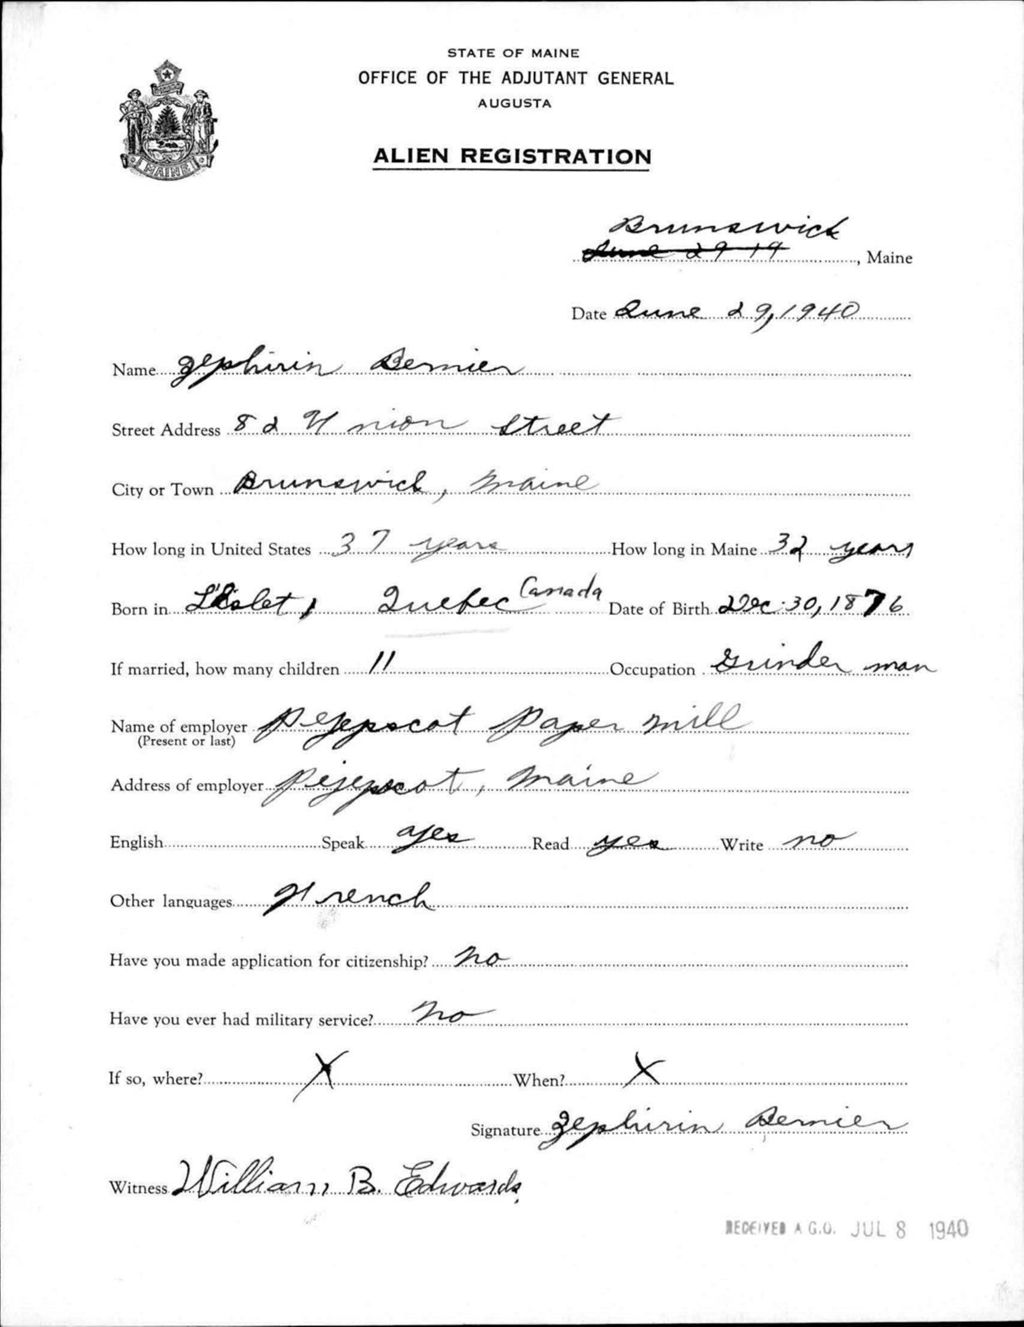 STATE OF MAINE
OFFICE OF THE ADJUTANT GENERAL
AUGUSTA
MAINE
ALIEN REGISTRATION
Brunswick
June 29 19, Maine
Date June 29, 1940
Name Zephirin Bernier
Street Address 82 Union Street
City or Town Brunswick, Maine
How long in United States 37 years How long in Maine 32 years
Born in L'Islet, Quebec Canada Date of Birth Dec. 30, 1876
If married, how many children 11 Occupation Grinder man
Name of employer Pejepscot Paper Mill
(Present or last)
Address of employer Pejepscot, Maine
English Speak yes Read yes Write no
Other languages French
Have you made application for citizenship? no
Have you ever had military service? no
If so, where? X When? X
Signature Zephirin Bernier
Witness William B. Edwards
RECEIVED A.G.O. JUL 8 1940